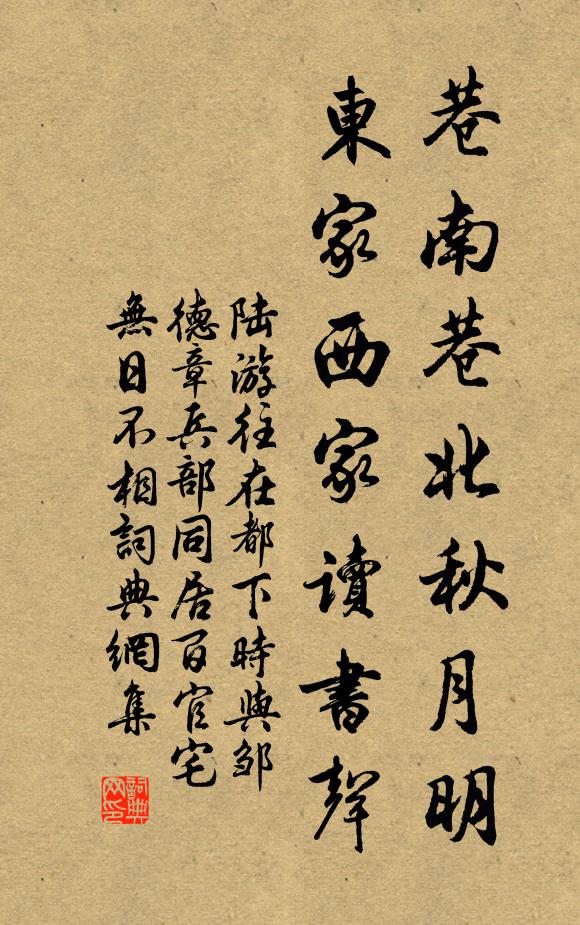 巷南巷北秋月明
東家西家讀書聲
陆游往在都下時與邹
德章兵部同居百官宅
無日不相詞典網集
詞典网印